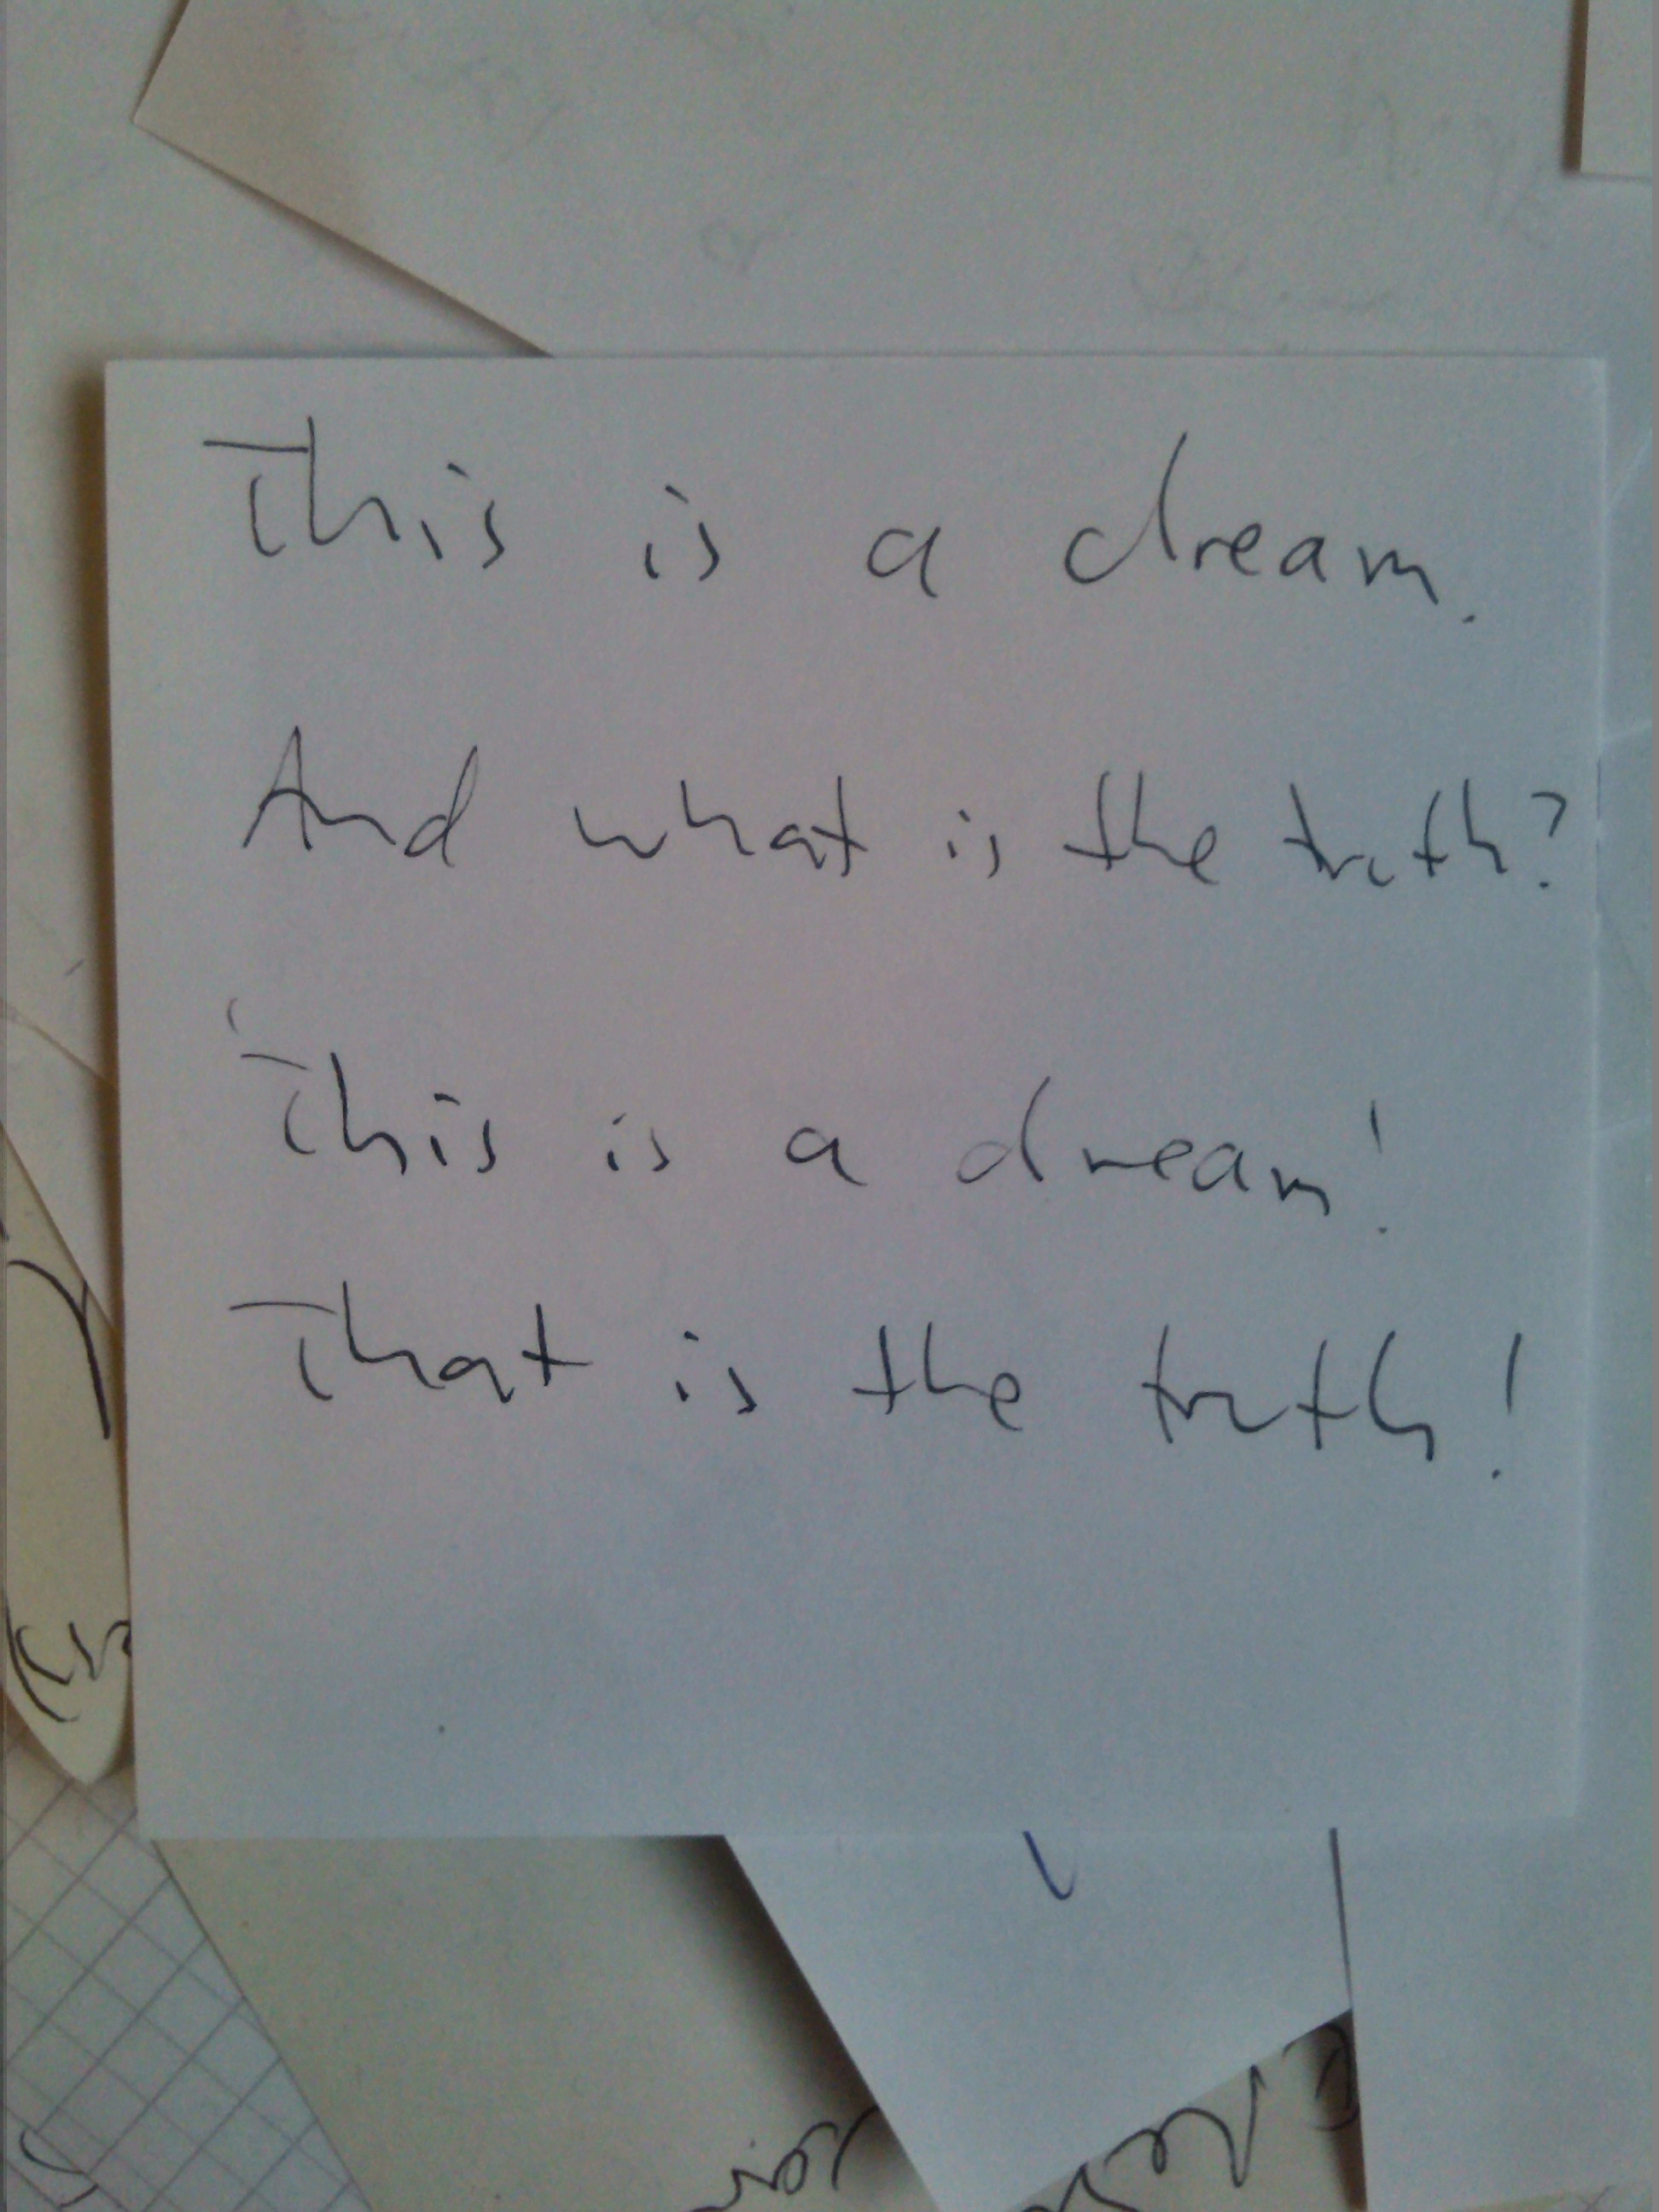 This is a dream.
And what is the truth?
This is a dream!
That is the truth!